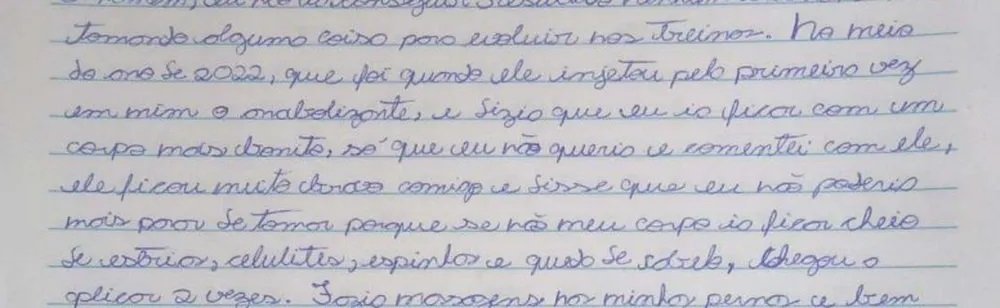 homem, eu não conseguir
tomando alguma coisa para evoluir nos treinos. No meio
do ano de 2022, que foi quando ele injetou pela primeira vez
em mim o anabolizante, e dizia que eu ia ficar com um
corpo mais bonito, só que eu não queria e comentei com ele,
ele ficou muito bravo comigo e disse que eu não poderia
mais parar de tomar porque se não meu corpo ia ficar cheio
de estrias, celulites, espinhas e queda de cabelo, chegou a
aplicar 2 vezes. Fazia massagens nas minhas pernas e bem